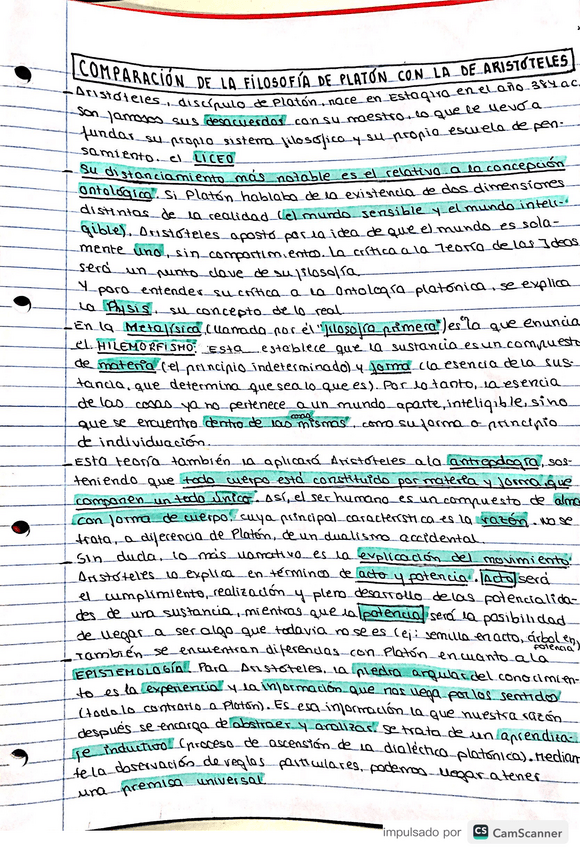 COMPARACIÓN DE LA FILOSOFÍA DE PLATÓN CON LA DE ARISTÓTELES
- Aristóteles, discípulo de Platón, nace en Estagira en el año 384 a.c.
son famosos sus desacuerdos con su maestro, lo que le llevó a
fundar su propio sistema filosófico y su propio escuela de pen-
samiento, el LICEO
- Su distanciamiento más notable es el relativo a la concepción
ontológica. Si Platón hablaba de la existencia de dos dimensiones
distintas de la realidad (el mundo sensible y el mundo inteli-
gible), Aristóteles apostó por la idea de que el mundo es sola-
mente uno, sin compartimentos. La crítica a la Teoría de las Ideas
será un punto clave de su filosofía.
Y para entender su crítica a la Ontología platónica, se explica
la Physis, su concepto de lo real
- En la Metafísica (llamada por él "filosofía primera") es la que enuncia
el HILEMORFISMO. Esta establece que la sustancia es un compuesto
de materia (el principio indeterminado) y forma (la esencia de la sus-
tancia, que determina que sea lo que es). Por lo tanto, la esencia
de las cosas ya no pertenece a un mundo aparte, inteligible, sino
que se encuentra dentro de las cosas mismas, como su forma o principio
de individuación.
- Esta teoría también la aplicará Aristóteles a la antropología, sos-
teniendo que todo cuerpo está constituido por materia y forma que
componen un todo único. Así, el ser humano es un compuesto de alma
con forma de cuerpo, cuya principal característica es la razón. No se
trata, a diferencia de Platón, de un dualismo accidental.
- Sin duda, lo más llamativo es la explicación del movimiento.
Aristóteles lo explica en términos de acto y potencia. Acto será
el cumplimiento, realización y pleno desarrollo de las potencialida-
des de una sustancia, mientras que la potencia será la posibilidad
de llegar a ser algo que todavía no se es (ej: semilla en acto, árbol en potencia)
- También se encuentran diferencias con Platón en cuanto a la
EPISTEMOLOGÍA. Para Aristóteles, la piedra angular del conocimien-
to es la experiencia y la información que nos llega por los sentidos
(todo lo contrario a Platón). Es esa información la que nuestra razón
después se encarga de abstraer y analizar. Se trata de un aprendiza-
je inductivo (proceso de ascensión de la dialéctica platónica). Median
te la observación de reglas particulares, podemos llegar a tener
una premisa universal
impulsado por CS CamScanner